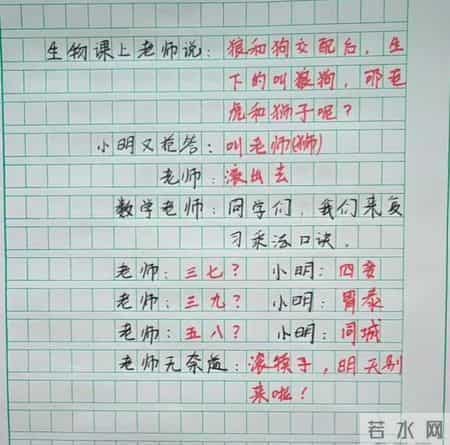 生物课上老师说：狼和狗交配后，生
下的叫狼狗，那老
虎和狮子呢？
小明又抢答：叫老师(狮)
老师：滚出去
数学老师：同学们，我们来复
习乘法口诀．
老师：三七？ 小明：四爱
老师：三九？ 小明：胃泰
老师：五八？ 小明：同城
老师无奈道：滚犊子，明天别
来啦！
若水网